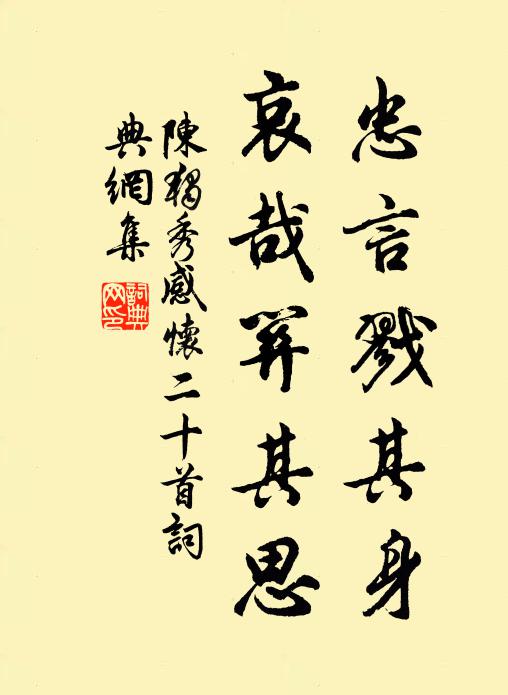 忠言戮其身
哀哉羿其思
陳獨秀感懷二十首詞
典網集
詞典网印